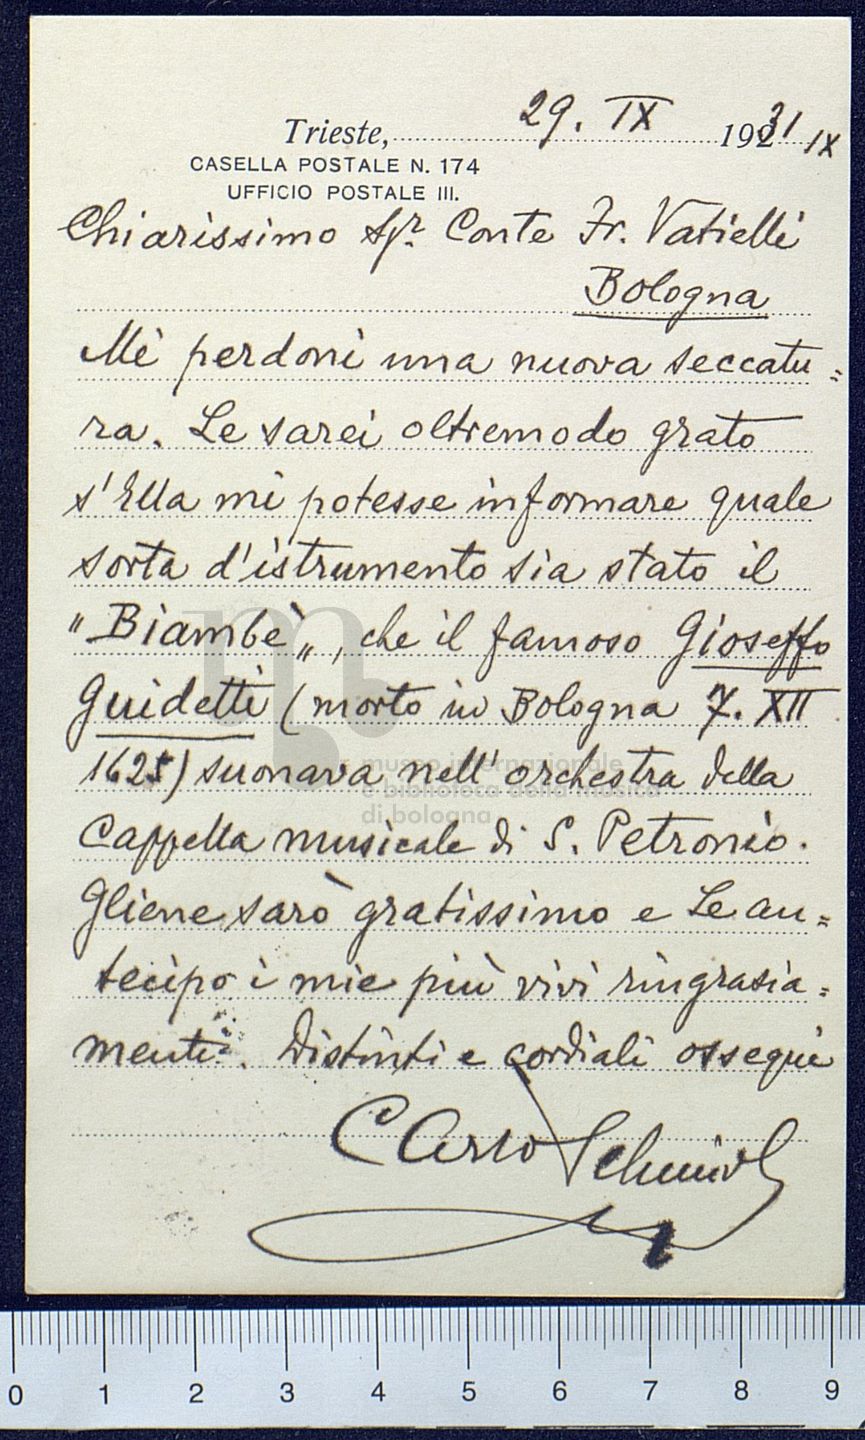 Trieste, 29. IX 1931 IX
CASELLA POSTALE N. 174
UFFICIO POSTALE III.
Chiarissimo Sgr. Conte Fr. Vatielli
Bologna
Mi perdoni una nuova seccatu=
ra. Le sarei oltremodo grato
s'Ella mi potesse informare quale
sorta d'istrumento sia stato il
"Biambè", che il famoso Gioseffo
Guidetti (morto in Bologna 7. XII
1625) suonava nell'orchestra della
Cappella musicale di S. Petronio.
Gliene sarò gratissimo e Le an=
tecipo i miei più vivi ringrazia=
menti. Distinti e cordiali ossequi
Carlo Schmidl
museo internazionale
e biblioteca della musica
di bologna
0 1 2 3 4 5 6 7 8 9